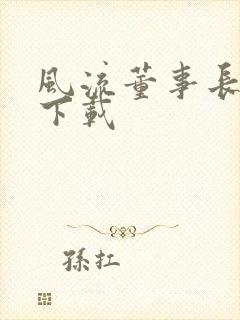 風流董事長
下載
孫扛